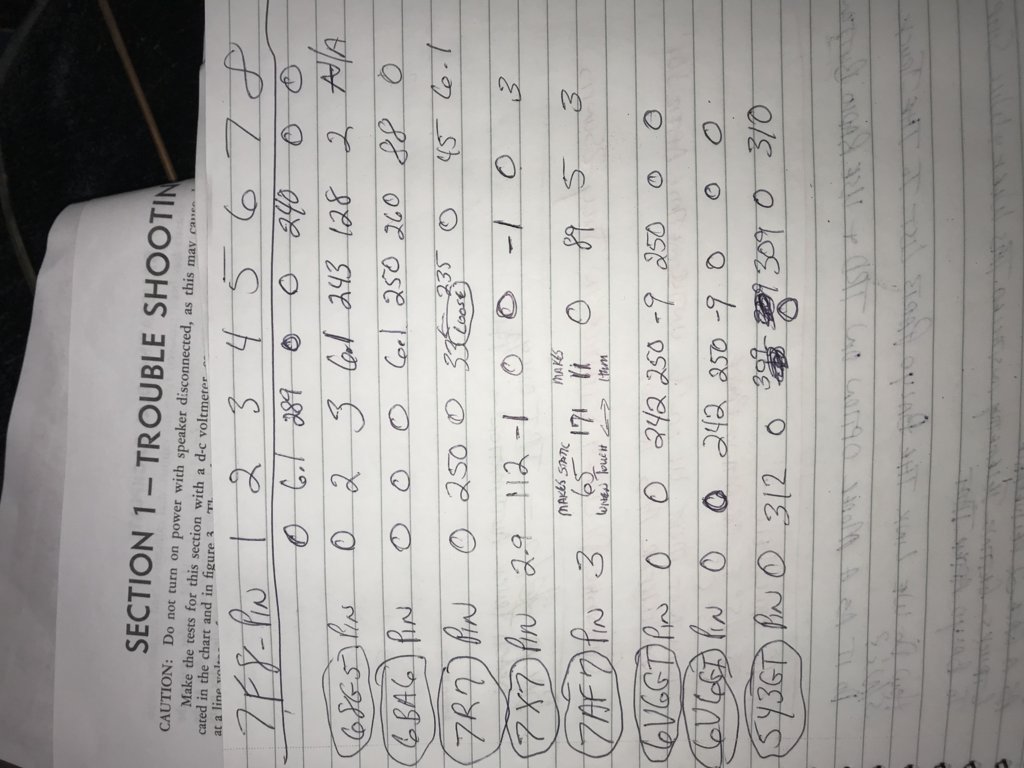 SECTION 1 – TROUBLE SHOOTIN
CAUTION: Do not turn on power with speaker disconnected, as this may cause
Make the tests for this section with a d-c voltmeter
cated in the chart and in figure 3. Th
at a line
7F8-PIN 1 2 3 4 5 6 7 8
0 6.1 289 0 0 240 0 0
6SG5 PIN 0 2 3 6.1 243 128 2 N/A
6BA6 PIN 0 0 0 6.1 250 260 88 0
7R7 PIN 0 250 0 33 235 0 45 6.1
(loose)
7X7 PIN 2.9 112 -1 0 0 -1 0 3
MAKES STATIC MAKES
7AF7 PIN 3 65 171 11 0 89 5 3
WHEN TOUCH Hum
6V6GT PIN 0 0 242 250 -9 250 0 0
6V6GT PIN 0 0 242 250 -9 0 0 0
5Y3GT PIN 0 312 0 359 0 310
0